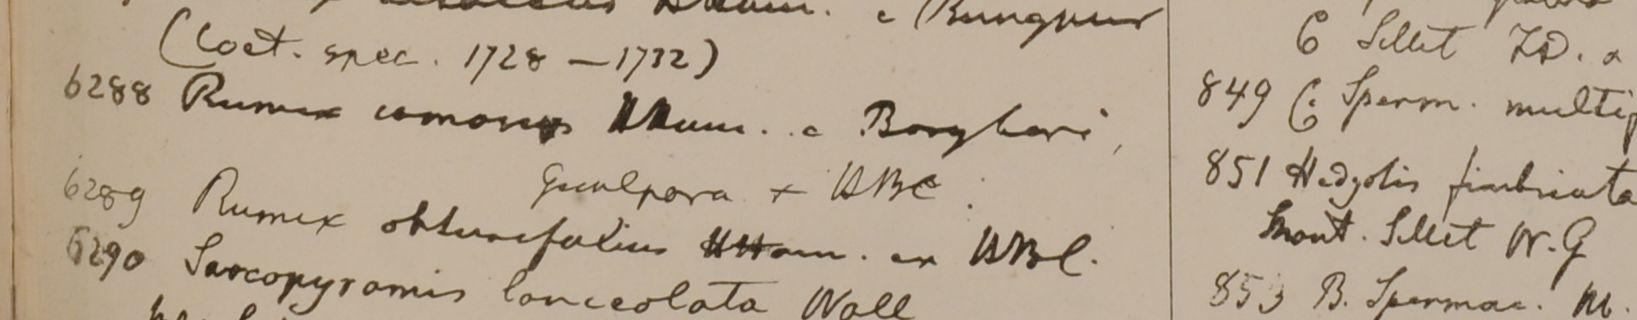 Ham. e Rungpur
(Coet. spec. 1728 — 1732)
6288 Rumex comosus Ham. e
Gualpara + HBC.
6289 Rumex obtusifolius Ham. ex HBC.
6290 Sarcopyramis lanceolata Wall
C Sillet
849 C. Sperm. multip
851 Hedyotis fimbriata
Mont. Sillet W.G
853 B. Spermac. M.